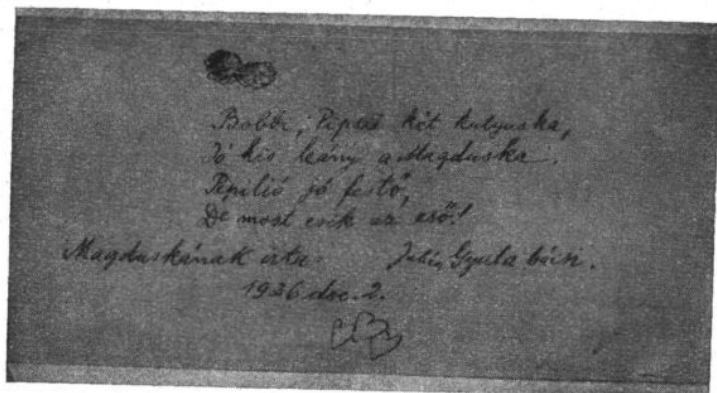 Bobbi, Pipszi két kutyuska,
Jó kis leány a Magduska.
Pipilió jó festő,
De most esik az eső!
Magduskának írta: Juhász Gyula bácsi.
1936 dec. 2.